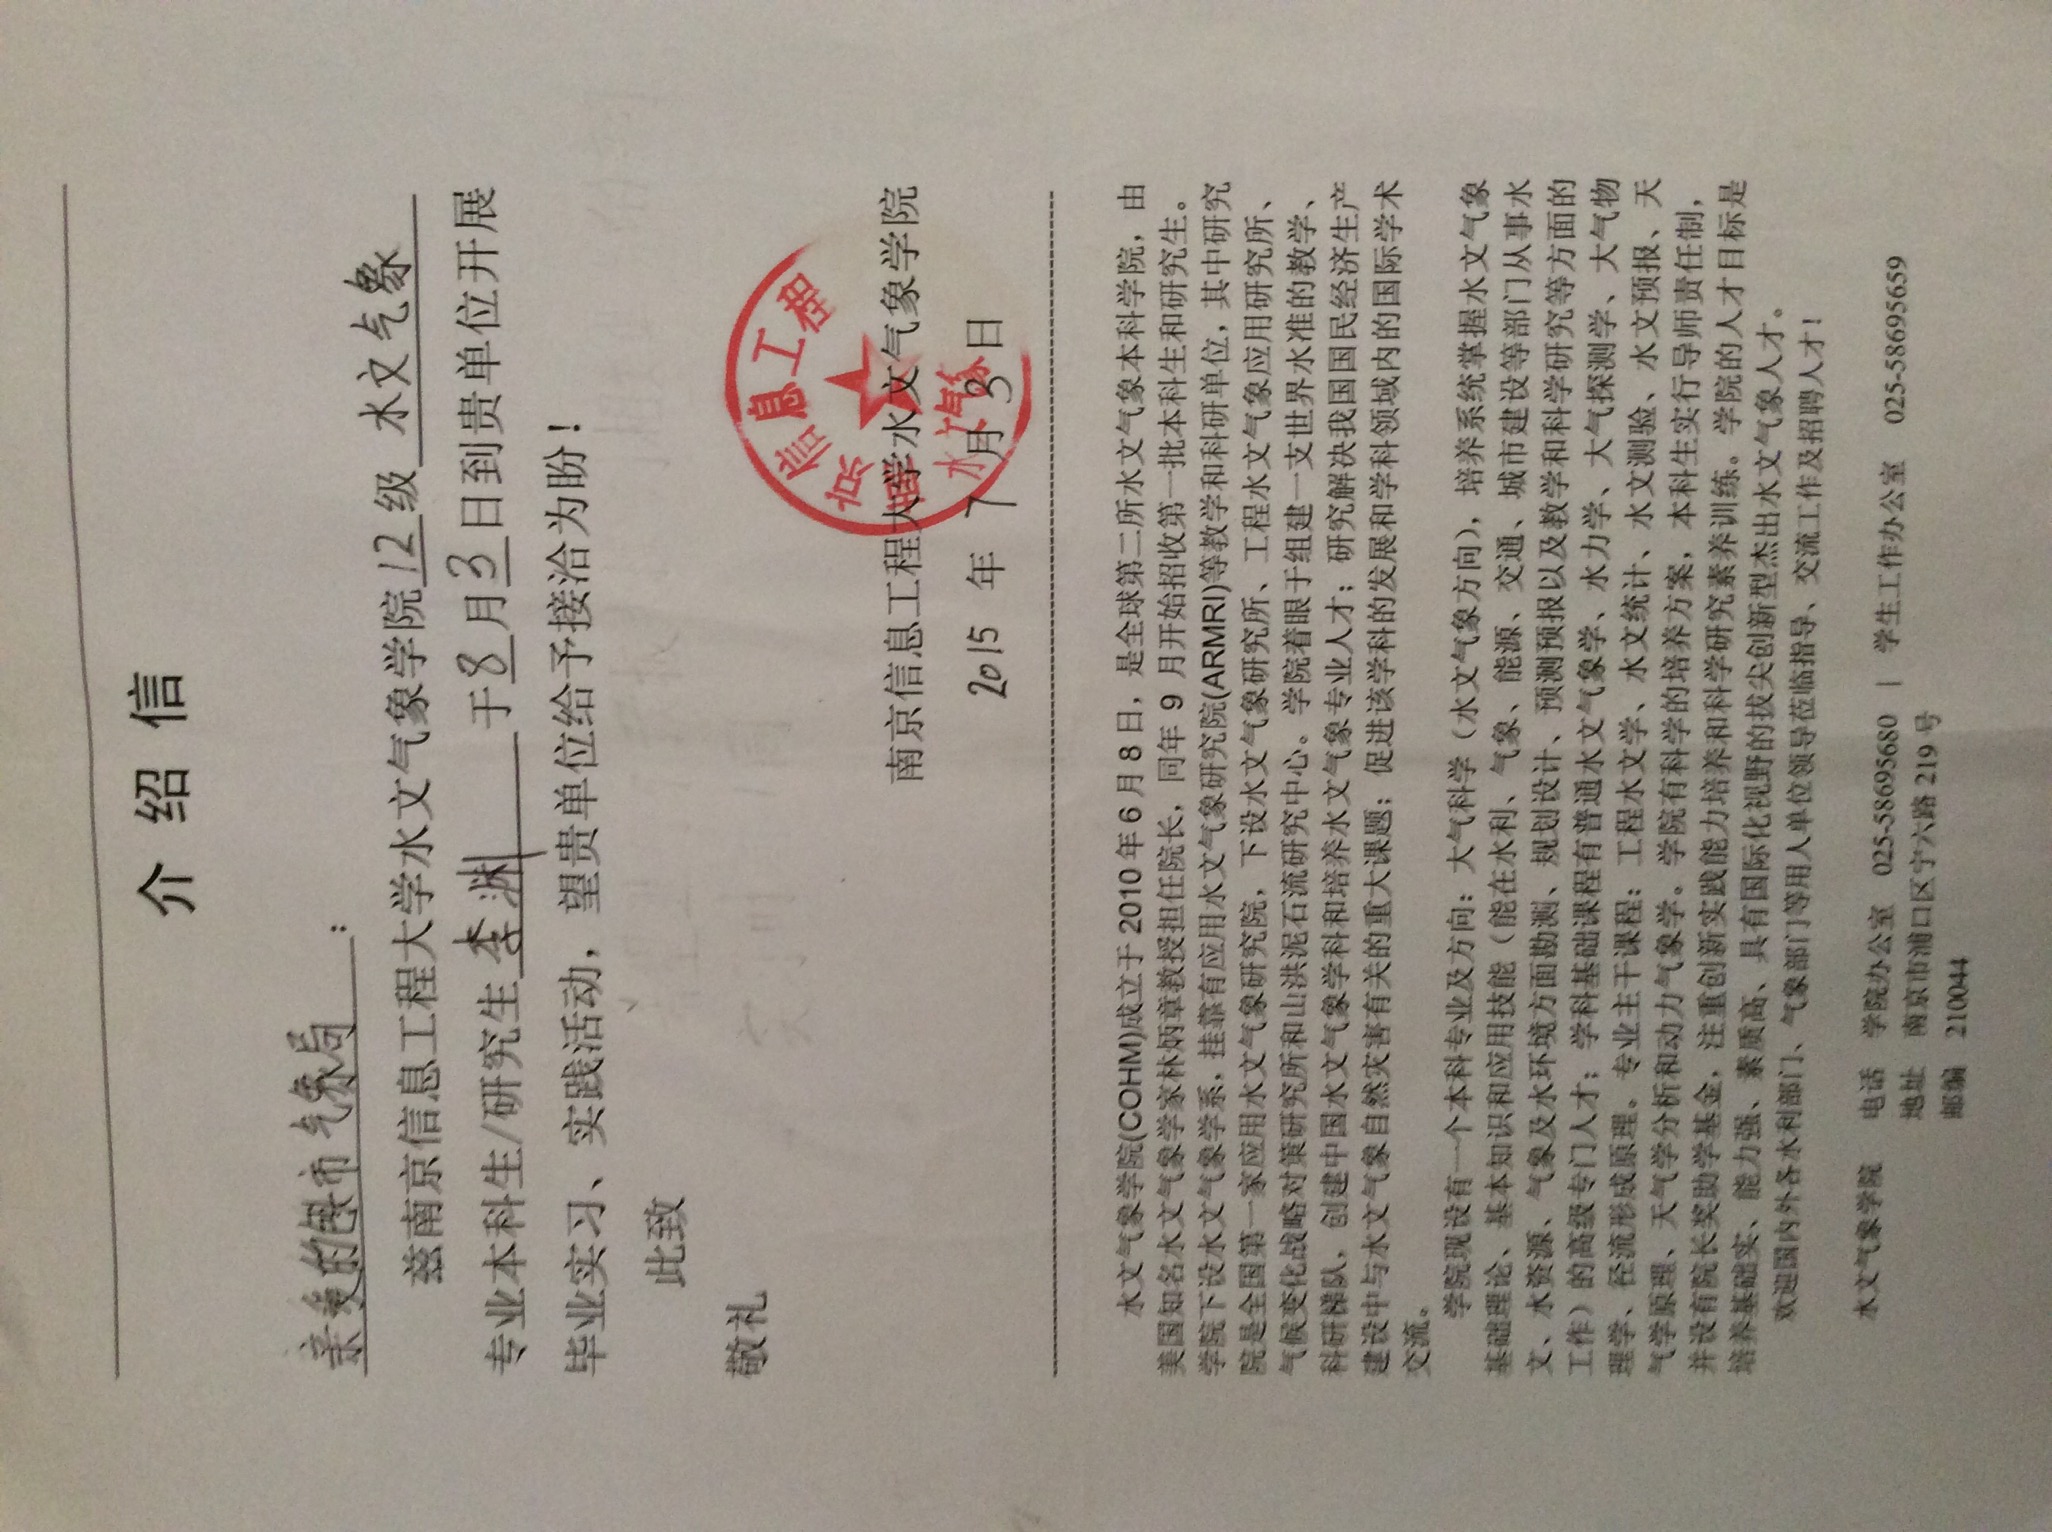 介 绍 信
亲爱的 市气象局:
兹南京信息工程大学水文气象学院12级 水文气象
专业本科生/研究生 李渊 于8月3日到贵单位开展
毕业实习、实践活动，望贵单位给予接洽为盼！
此致
敬礼
南京信息工程大学水文气象学院
2015 年 7 月 3 日
信息工程
水文气象
水文气象学院(COHM)成立于 2010 年 6 月 8 日，是全球第二所水文气象本科学院，由
美国知名水文气象学家林炳章教授担任院长，同年 9 月开始招收第一批本科生和研究生。
学院下设水文气象学系，挂靠有应用水文气象研究院(ARMRI)等教学和科研单位，其中研究
院是全国第一家应用水文气象研究院，下设水文气象研究所、工程水文气象应用研究所、
气候变化战略对策研究所和山洪泥石流研究中心。学院着眼于组建一支世界水准的教学、
科研梯队，创建中国水文气象学科和培养水文气象专业人才；研究解决我国国民经济生产
建设中与水文气象自然灾害有关的重大课题；促进该学科的发展和学科领域内的国际学术
交流。
学院现设有一个本科专业及方向：大气科学（水文气象方向），培养系统掌握水文气象
基础理论、基本知识和应用技能（能在水利、气象、能源、交通、城市建设等部门从事水
文、水资源、气象及水环境方面勘测、规划设计、预测预报以及教学和科学研究等方面的
工作）的高级专门人才；学科基础课程有普通水文气象学、水力学、大气探测学、大气物
理学、径流形成原理。专业主干课程：工程水文学、水文统计、水文测验、水文预报、天
气学原理、天气学分析和动力气象学。学院有科学的培养方案，本科生实行导师责任制，
并设有院长奖助学基金，注重创新实践能力培养和科学研究素养训练。学院的人才目标是
培养基础实、能力强、素质高、具有国际化视野的拔尖创新型杰出水文气象人才。
欢迎国内外各水利部门、气象部门等用人单位领导莅临指导、交流工作及招聘人才！
水文气象学院 电话 学院办公室 025-58695680 | 学生工作办公室 025-58695659
地址 南京市浦口区宁六路 219 号
邮编 210044